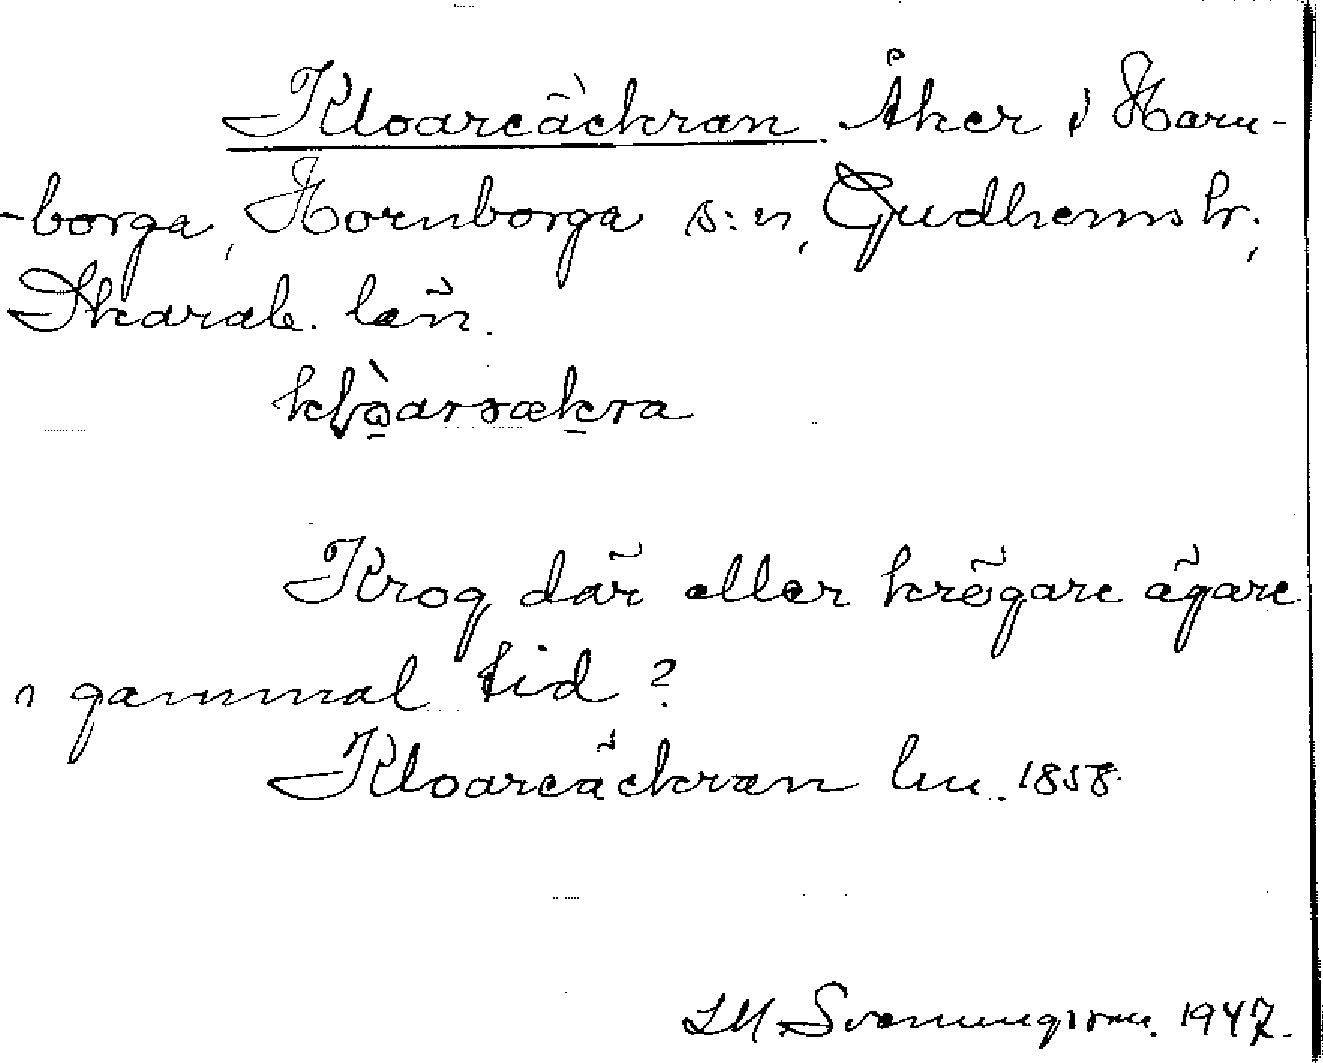 Kloarcäckran. Åker i Horn-
-borga, Hornborga s:n, Gudhems hr.,
Skarab. län.
klòarsækra
Krog där eller krögare ägare
i gammal tid?
Kloarcäckran lm. 1858.
S.M. Svenningsson. 1947.